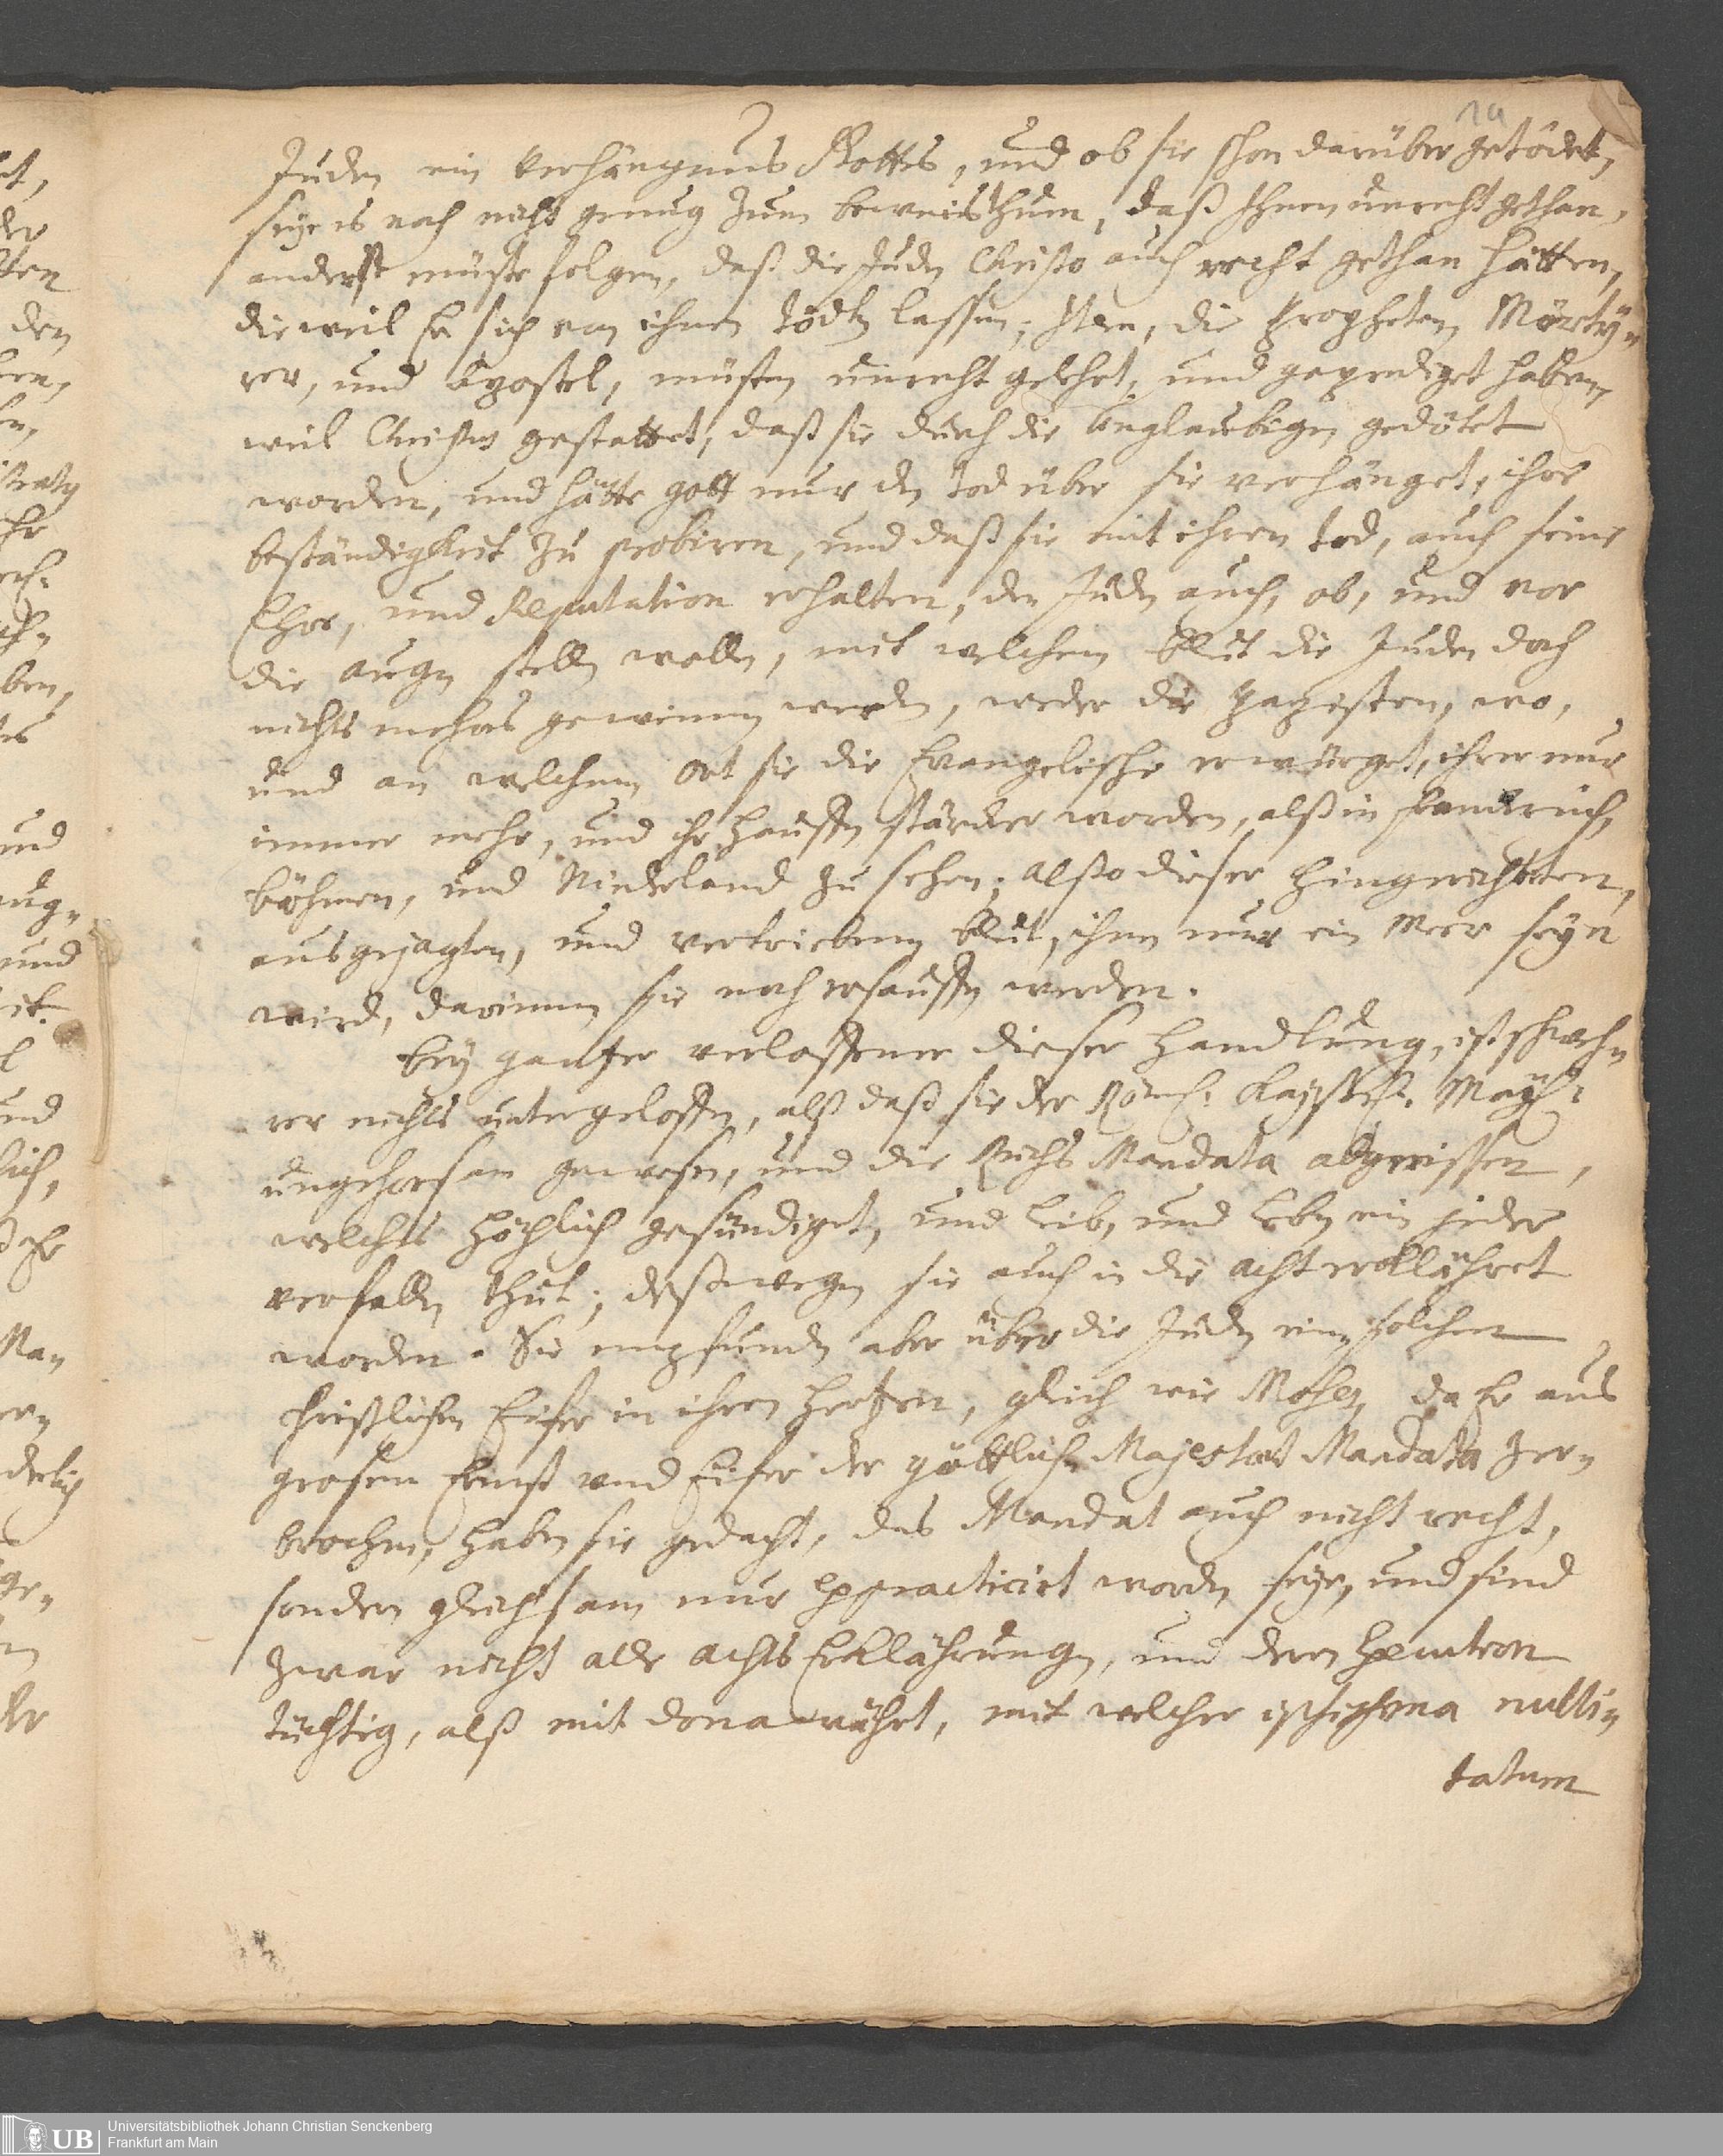 Juden ein Verhängnus Gottes, und ob sie schon darüber getödet,
seye es noch nicht genug zum beweisthum, daß Ihnen unrecht gethan,
anderst müste folgen, daß die Juden Christo auch recht gethan hätten,
dieweil Er sich von ihnen tödten lassen; Item, die Propheten, Märty„
rer, und Apostel, müsten unrecht gelehrt, und geprediget haben,
weil Christus gestattet, daß sie durch die Unglaubigen gedötet
worden, und hätte gott nur den tod über sie verhänget, ihre
beständigkeit zu probiren, und daß sie mit ihren tod, auch seine
Ehre, und Reputation erhalten, den Juden auch, ob, und vor
die augen stellen wollen, mit welchem blut die Juden doch
nichts mehres gewinnen werden, weder die Papisten, wo,
und an welchem Ort sie die Evangelische erwürget, ihrer nur
immer mehr, und ihr hauffen stärcker worden, alß in Franckreich,
Böhmen, und Niederland zu sehen; also dieser hingerichteten,
ausgejagten, und vertriebenen blut, ihnen nur ein Meer seyn
wird, darinnen sie noch ersauffen werden.
Bey gantzer verloffener dieser Handlung, ist schweh„
rer nichts untergeloffen, alß daß sie der Röm: Kayserl. May:
ungehorsam gewesen, und die Reichs Mandata abgerissen,
welches höchlich gesündiget, und leib, und leben ein jeder
verfallen thut; deßwegen sie auch in die acht erklähret
worden. Sie empfunden aber über die Juden einen solchen
christlichen Eifer in ihren Hertzen, gleich wie Moses, da Er aus
grosem Ernst und Eifer der göttlichen Majestat Mandata zer„
brochen, haben sie gedacht, das Mandat auch nicht recht,
sondern gleichsam nur expracticirt worden seye, und sind
zwar nicht alle achts Erklährungen, und deren Execution
tüchtig, alß mit Donawährt, mit welcher nulli„
tatum
Universitätsbibliothek Johann Christian Senckenberg
Frankfurt am Main
UB